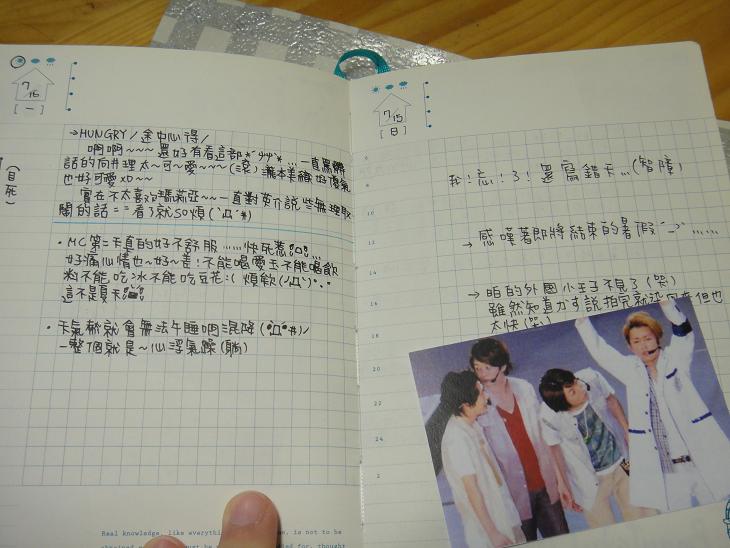 7/16
[一]
(自死)
→HUNGRY/途中心得/
啊啊~~~還好有看這部*´ㄚㄚ`*...一直罵髒
話的向井理太~可~愛~~~(滾)瀧本美織好傻氣
也好可愛XD~~
實在不太喜歡瑪莉亞~~一直對英介說些無理取
鬧的話==看了就SO煩(`Д´#)
•MC第二天真的好不舒服......快死惹
好痛心情也~好~差!不能喝愛玉不能喝飲
料不能吃冰不能吃豆花:( 煩飲
這不是夏天
•天氣熱就會無法午睡啊混降
一整個就是~心浮氣躁(躺)
Real knowledge, like everything
is not to be
for, thought
7/15
[日]
我!忘!了!還寫錯天...(智障)
→感嘆著即將結束的暑假......
→咱的外國小王子不見了(哭)
雖然知道かず説拍完就染回來但也
太快(哭)
8
10
12
14
16
18
20
22
24
2